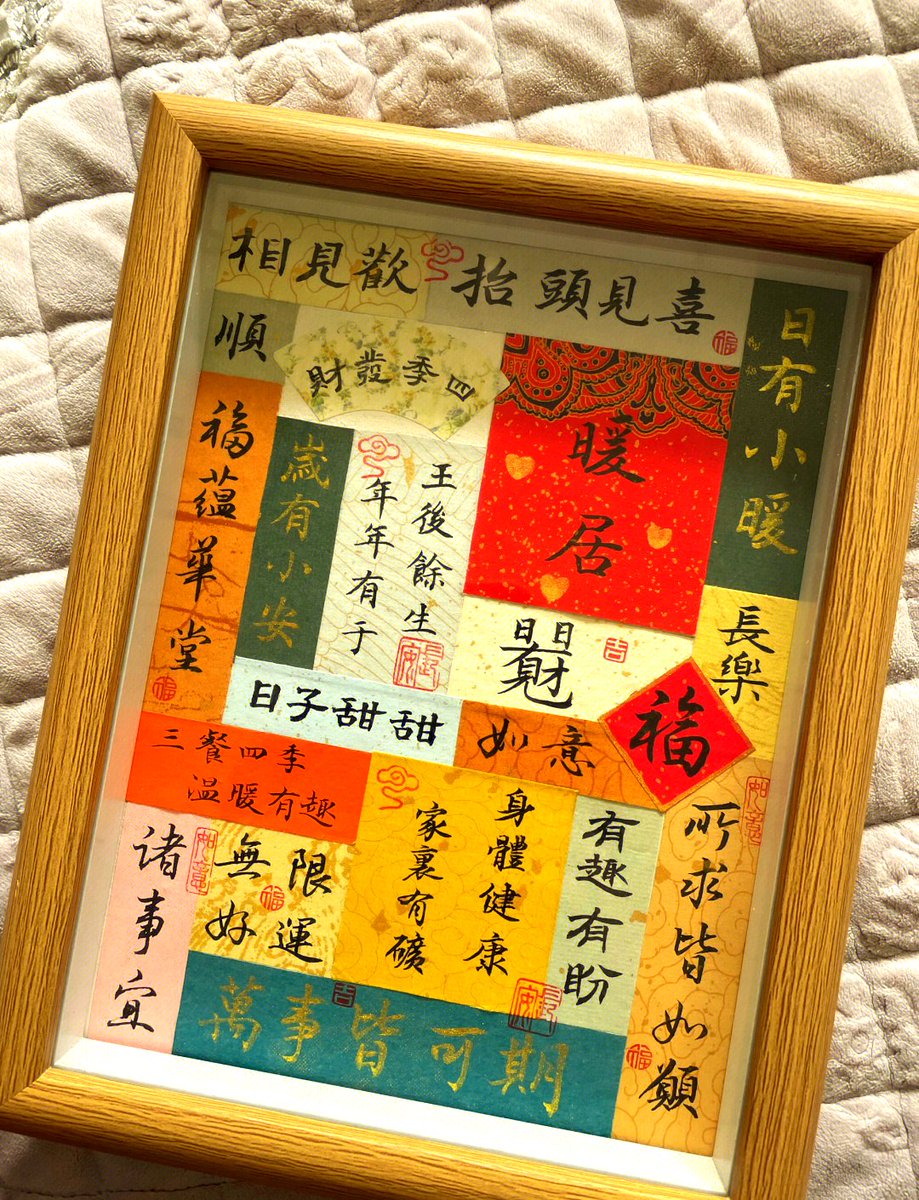 相見歡
抬頭見喜
福
順
四季發財
日有小暖
暖居
福蘊華堂
福
歲有小安
王後餘生
年年有于
長安
日日見財
吉
長樂
福
日子甜甜
如意
三餐四季
温暖有趣
诸事宜
如意
無限
好運
福
身體健康
家裏有礦
長安
有趣有盼
所求皆如願
如意
福
萬事皆可期
吉